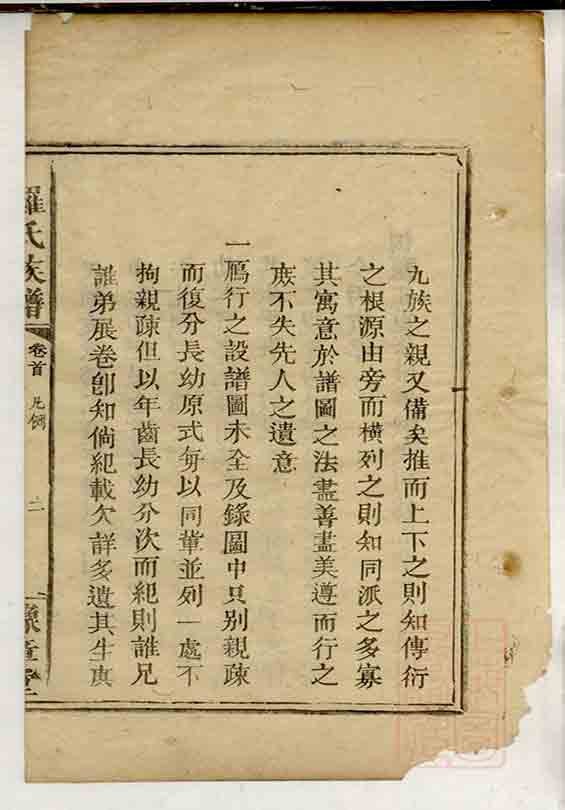 九族之親又備矣推而上下之則知傳衍
之根源由旁而橫列之則知同派之多寡
其寓意於譜圖之法盡善盡美遵而行之
庶不失先人之遺意
一鴈行之設譜圖未全及錄圖中只別親疎
而復分長幼原式每以同輩並列一處不
拘親疎但以年齒長幼分次而紀則誰兄
誰弟展卷卽知倘紀載欠詳多遺其生庚
羅氏族譜 卷首 凡例 二 豫章堂